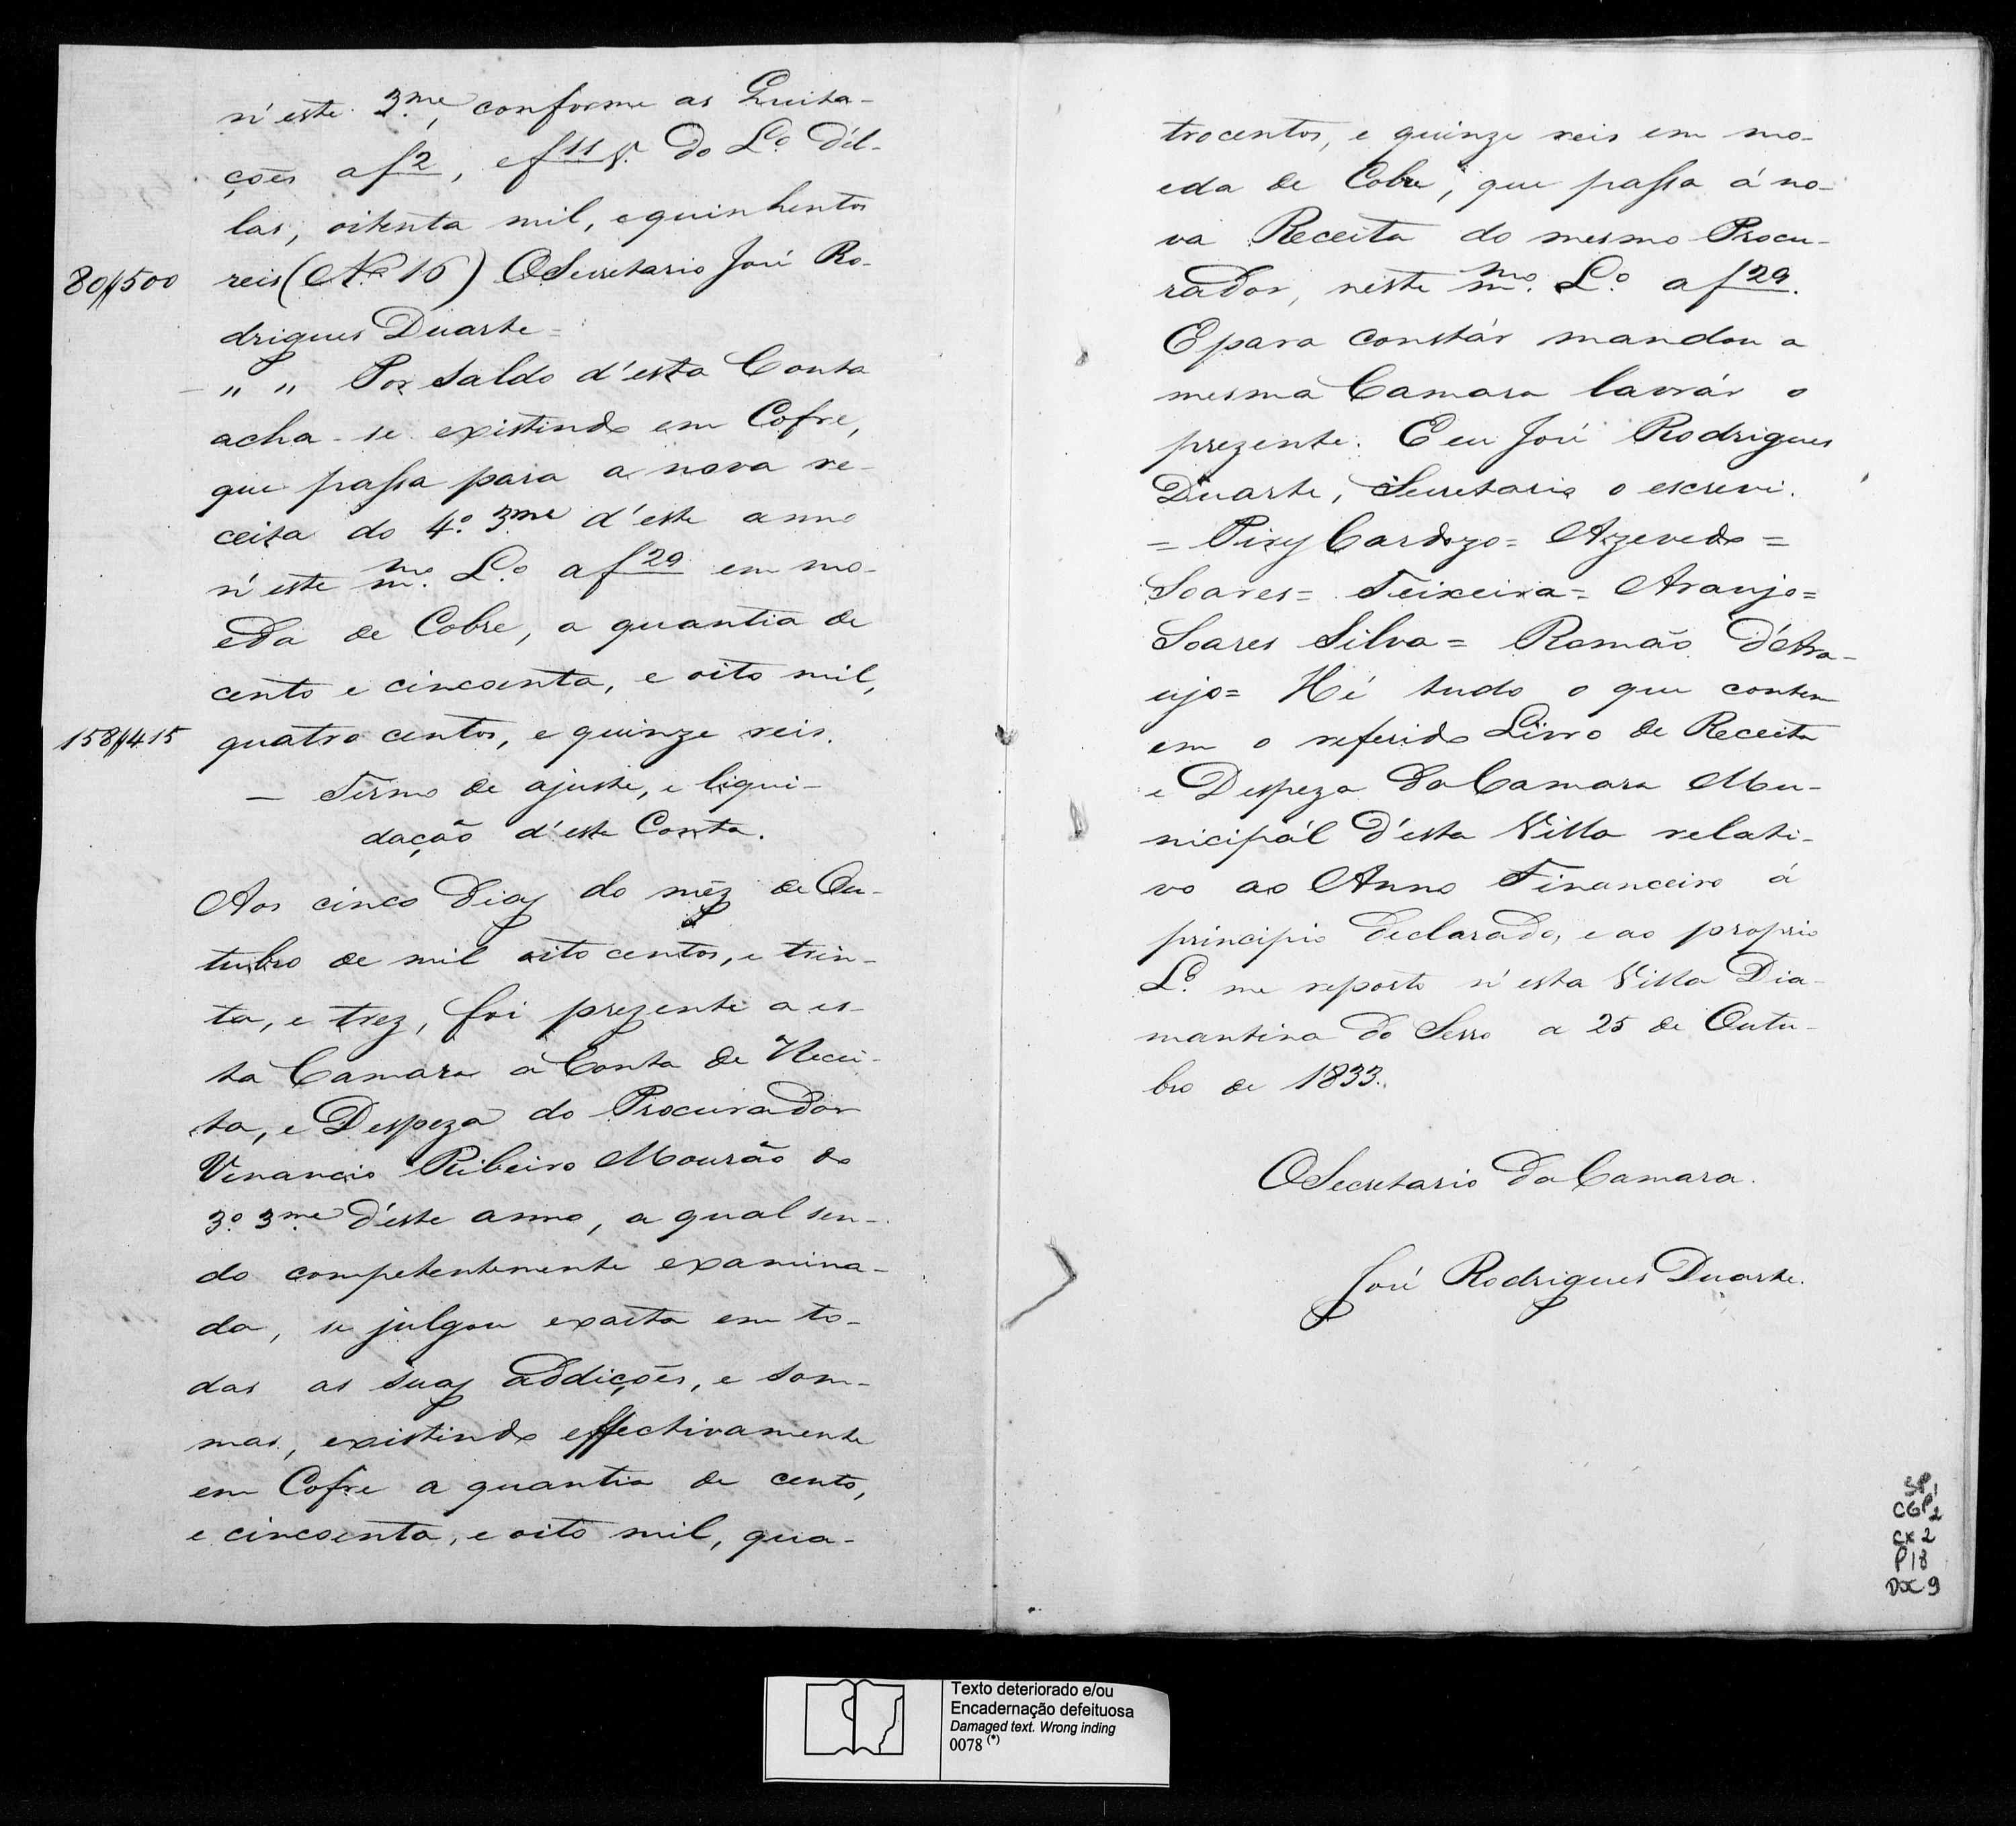 n'este 3.me, conforme as Quita-
ções a f 2, e f 11 v. do L.o d'el-
las, oitenta mil, e quinhentos
80$500 reis (N.o 16) O Secretario José Ro-
drigues Duarte =
- " " Por Saldo d'esta Conta
acha-se existindo em Cofre,
que passa para a nova re-
ceita do 4.o 3.me d'este anno
n'este m.mo L.o a f 29 em mo-
eda de Cobre, a quantia de
cento e cincoenta, e oito mil,
158$415 quatro centos, e quinze reis.
- Termo de ajuste, e liqui-
dação d'esta Conta.
Aos cinco dias do mêz de Ou-
tubro de mil oito centos, e trin-
ta, e trez, foi prezente a es-
ta Camara a Conta de Recei-
ta, e Despeza do Procurador
Venancio Ribeiro Mourão do
3.o 3.me d'este anno, a qual sen-
do competentemente examina-
da, se julgou exacta em to-
das as suas addições, e som-
mas, existindo effectivamente
em Cofre a quantia de cento,
e cincoenta, e oito mil, qua-
trocentos, e quinze reis em mo-
eda de Cobre, que passa á no-
va Receita do mesmo Procu-
rador, neste m.mo L.o a f 29.
E para constár mandou a
mesma Camara lavrár o
prezente. E eu José Rodrigues
Duarte, Secretario o escrevi.
= Pires Cardozo = Azevedo =
Soares = Teixeira = Araujo =
Soares Silva = Romão d'Ara-
ujo = Hé tudo o que contem
em o referido Livro de Receita
e Despeza da Camara Mu-
nicipál d'esta Villa relati-
vo ao Anno Financeiro á
principio declarado, e ao proprio
L.o me reporto n'esta Villa Dia-
mantina do Serro a 25 de Outu-
bro de 1833.
O Secretario da Camara.
José Rodrigues Duarte.
SP1
CGP2
CX2
P18
DOC.9
Texto deteriorado e/ou
Encadernação defeituosa
Damaged text. Wrong inding
0078 (*)